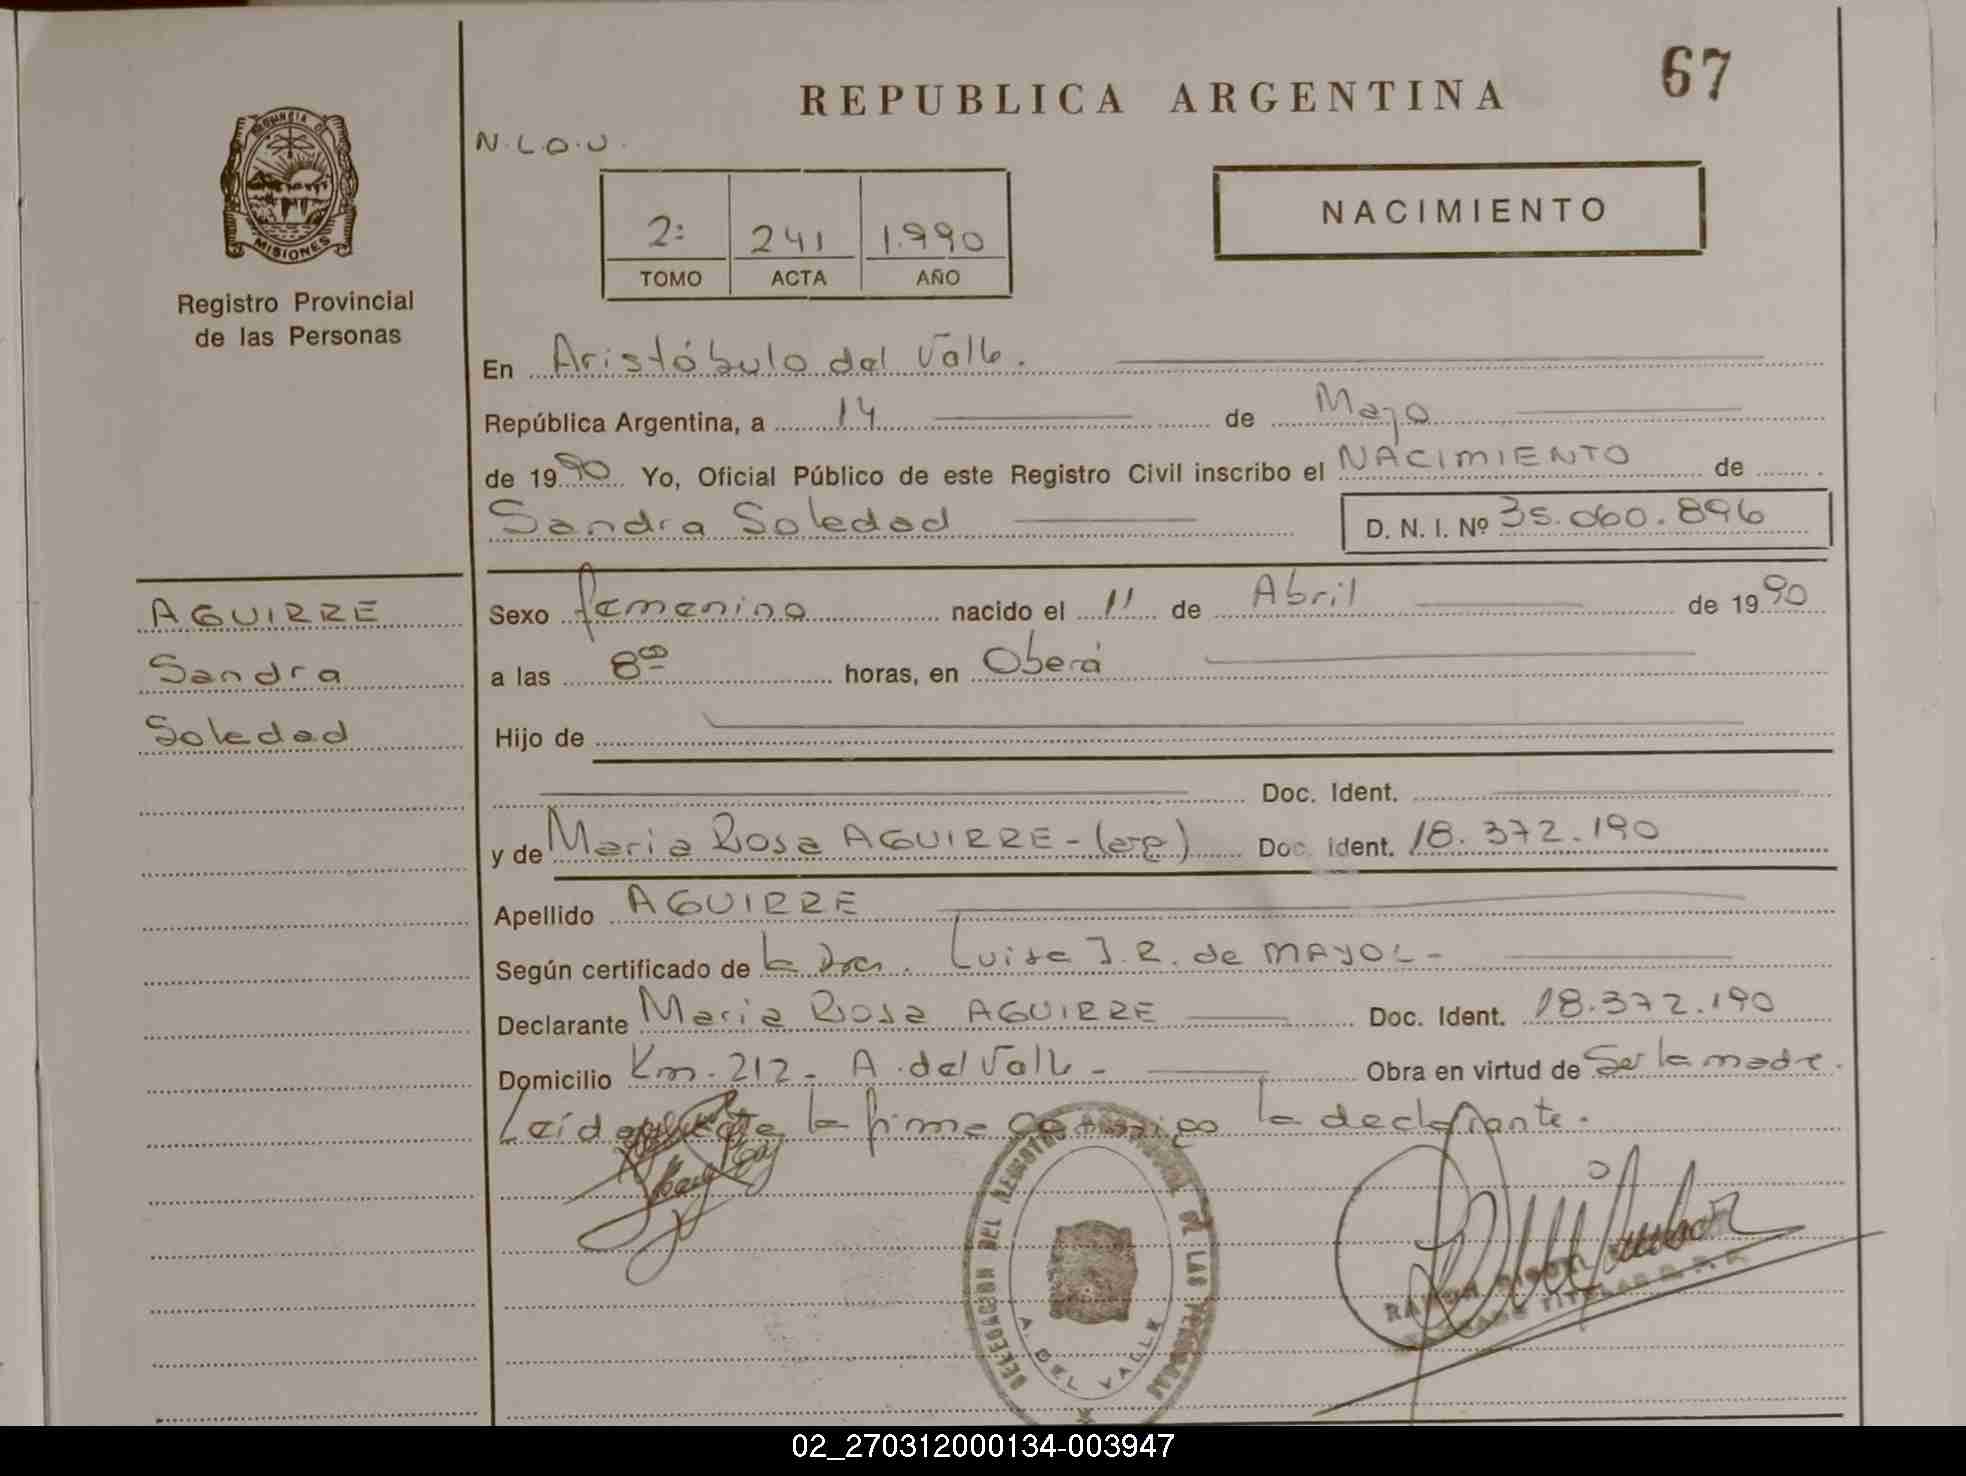 67
REPUBLICA ARGENTINA
N.L.O.U.
PROVINCIA DE
MISIONES
Registro Provincial
de las Personas
2: 241 1.990
TOMO ACTA AÑO
NACIMIENTO
En Aristóbulo del Valle.
República Argentina, a 14 de Mayo
de 1990 Yo, Oficial Público de este Registro Civil inscribo el NACIMIENTO de
Sandra Soledad D. N. I. Nº 35.060.896
AGUIRRE
Sandra
Soledad
Sexo femenino nacido el 11 de Abril de 1990
a las 8°° horas, en Oberá
Hijo de
Doc. Ident.
y de Maria Rosa AGUIRRE - Doc. Ident. 18.372.190
Apellido AGUIRRE
Según certificado de la Dra. Luisa J.R. de MAYOL -
Declarante Maria Rosa AGUIRRE Doc. Ident. 18.372.190
Domicilio Km. 212 - A. del Valle - Obra en virtud de Ser la madre.
Leída la firma conmigo la declarante.
DELEGACION DEL REGISTRO PROVINCIAL DE LAS PERSONAS
A. DEL VALLE
TITULAR R. P. P.
02_270312000134-003947